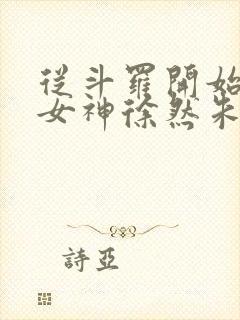 從斗羅開始
女神徐然朱
詩亞